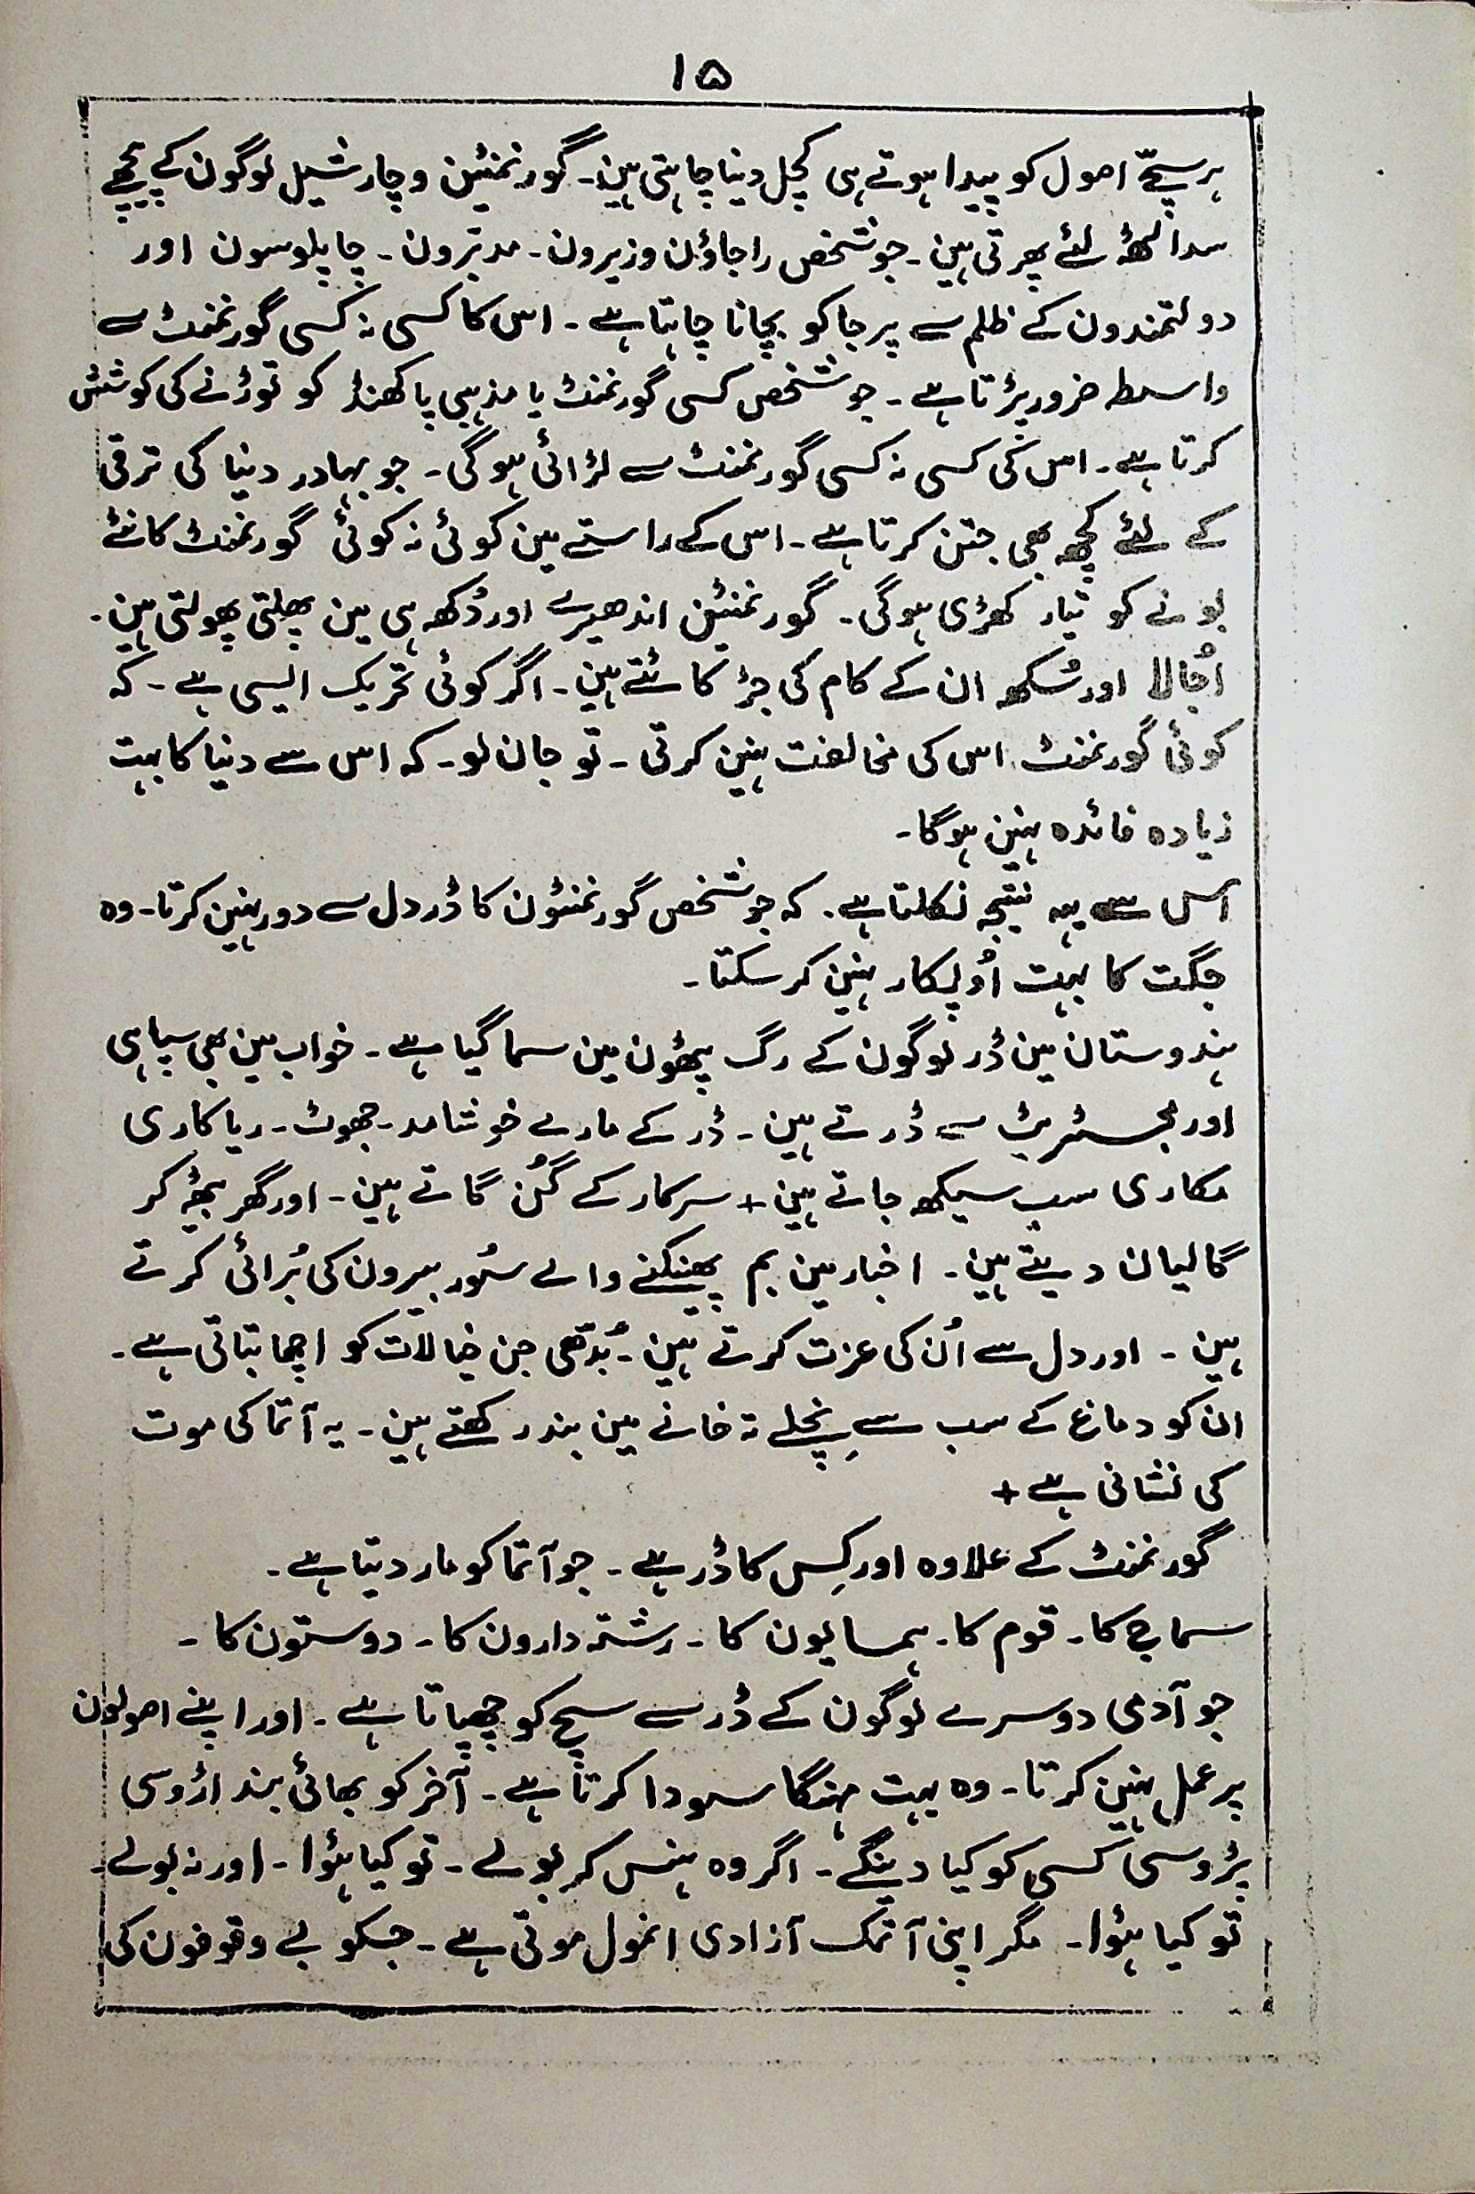 ۱۵
ہر سچّے اصول کو پیدا ہوتے ہی کچل دینا چاہتی ہین۔ گورنمنٹین وچار شیل لوگون کے پیچھے
سدا لٹھ لئے پھرتی ہین۔ جو شخص راجاؤن وزیرون۔ مدبّرون۔ چاپلوسون اور
دولتمندون کے ظلم سے پرجا کو بچانا چاہتا ہے۔ اس کا کسی نہ کسی گورنمنٹ سے
واسطہ ضرور پڑتا ہے۔ جو شخص کسی گورنمنٹ یا مذہبی پاکھنڈ کو توڑنے کی کوشش
کرتا ہے۔ اس کی کسی نہ کسی گورنمنٹ سے لڑائی ہوگی۔ جو بہادر دنیا کی ترقی
کے لئے کچھ بھی جتن کرتا ہے۔ اس کے راستے مین کوئی نہ کوئی گورنمنٹ کانٹے
بونے کو تیار کھڑی ہوگی۔ گورنمنٹین اندھیرے اور دُکھ ہی مین پھلتی پھولتی ہین۔
اُجالا اور سُکھ ان کے کام کی جڑ کاٹتے ہین۔ اگر کوئی تحریک ایسی ہے۔ کہ
کوئی گورنمنٹ اس کی مخالفت نہین کرتی۔ تو جان لو۔ کہ اس سے دنیا کا بہت
زیادہ فائدہ نہین ہوگا۔
اس سے یہہ نتیجہ نکلتا ہے۔ کہ جو شخص گورنمنٹون کا ڈر دل سے دور نہین کرتا۔ وہ
جگت کا بہت اُوپکار نہین کر سکتا۔
ہندوستان مین ڈر لوگون کے رگ پٹھون مین سما گیا ہے۔ خواب مین بھی سپاہی
اور مجسٹریٹ سے ڈرتے ہین۔ ڈر کے مارے خوشامد۔ جھوٹ۔ ریاکاری
مکاری سب سیکھ جاتے ہین + سرکار کے گُن گاتے ہین۔ اور گھر بیٹھ کر
گالیان دیتے ہین۔ اخبار مین بم پھینکنے والے سُور بیرون کی بُرائی کرتے
ہین۔ اور دل سے اُن کی عزت کرتے ہین۔ بُدّھی جن خیالات کو اچھا بتاتی ہے۔
ان کو دماغ کے سب سے نِچلے تہ خانے مین بند رکھتے ہین۔ یہ آتما کی موت
کی نشانی ہے +
گورنمنٹ کے علاوہ اور کِس کا ڈر ہے۔ جو آتما کو مار دیتا ہے۔
سماج کا۔ قوم کا۔ ہمسایون کا۔ رشتہ دارون کا۔ دوستون کا۔
جو آدمی دوسرے لوگون کے ڈر سے سچ کو چھپاتا ہے۔ اور اپنے اصولون
پر عمل نہین کرتا۔ وہ بہت مہنگا سودا کرتا ہے۔ آخر کو بھائی بند اڑوسی
پڑوسی کسی کو کیا دینگے۔ اگر وہ ہنس کر بولے۔ تو کیا ہؤا۔ اور نہ بولے۔
تو کیا ہؤا۔ مگر اپنی آتمک آزادی انمول موتی ہے۔ جسکو بے وقوفون کی